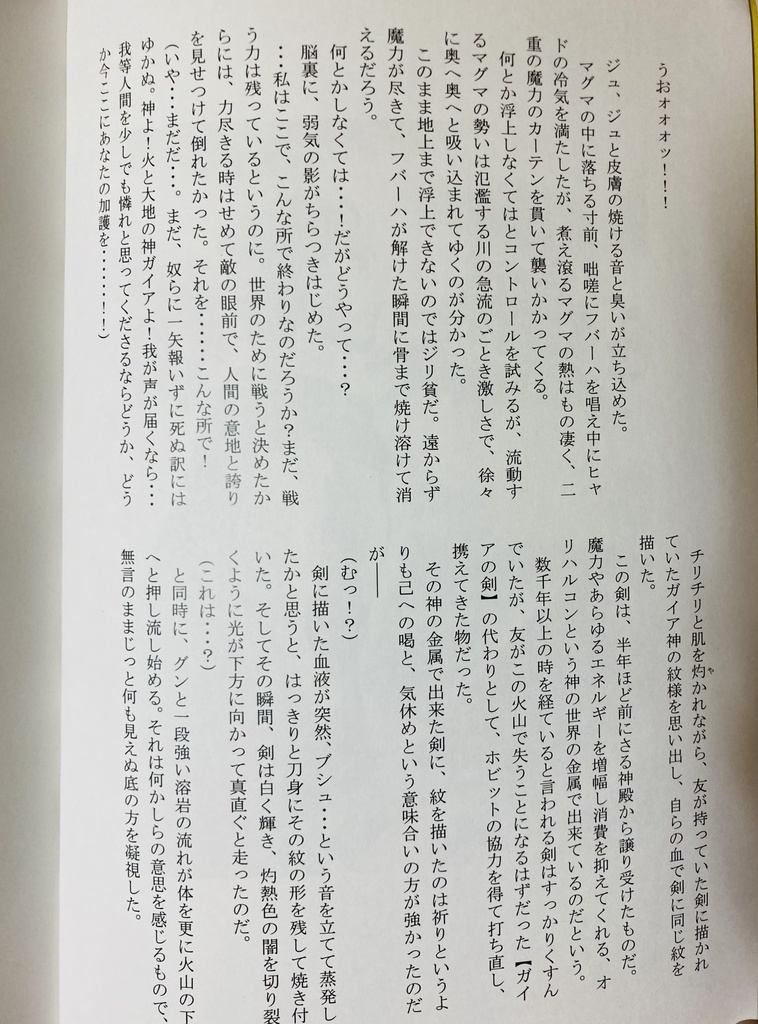 うおォォォッ！！！
ジュ、ジュと皮膚の焼ける音と臭いが立ち込めた。
マグマの中に落ちる寸前、咄嗟にフバーハを唱え中にヒャ
ドの冷気を満たしたが、煮え滾るマグマの熱はもの凄く、二
重の魔力のカーテンを貫いて襲いかかってくる。
何とか浮上しなくてはとコントロールを試みるが、流動す
るマグマの勢いは氾濫する川の急流のごとき激しさで、徐々
に奥へ奥へと吸い込まれてゆくのが分かった。
このまま地上まで浮上できないのではジリ貧だ。遠からず
魔力が尽きて、フバーハが解けた瞬間に骨まで焼け溶けて消
えるだろう。
何とかしなくては・・・！だがどうやって・・・？
脳裏に、弱気の影がちらつきはじめた。
・・・私はここで、こんな所で終わりなのだろうか？まだ、戦
う力は残っているというのに。世界のために戦うと決めたか
らには、力尽きる時はせめて敵の眼前で、人間の意地と誇り
を見せつけて倒れたかった。それを・・・・・・こんな所で！
（いや・・・まだだ・・・。まだ、奴らに一矢報いずに死ぬ訳には
ゆかぬ。神よ！火と大地の神ガイアよ！我が声が届くなら・・・
我等人間を少しでも憐れと思ってくださるならどうか、どう
か今ここにあなたの加護を・・・・・・！！）
チリチリと肌を灼かれながら、友が持っていた剣に描かれ
ていたガイア神の紋様を思い出し、自らの血で剣に同じ紋を
描いた。
この剣は、半年ほど前にさる神殿から譲り受けたものだ。
魔力やあらゆるエネルギーを増幅し消費を抑えてくれる、オ
リハルコンという神の世界の金属で出来ているのだという。
数千年以上の時を経ていると言われる剣はすっかりくすん
でいたが、友がこの火山で失うことになるはずだった【ガイ
アの剣】の代わりとして、ホビットの協力を得て打ち直し、
携えてきた物だった。
その神の金属で出来た剣に、紋を描いたのは祈りというよ
りも己への喝と、気休めという意味合いの方が強かったのだ
が――
（むっ！？）
剣に描いた血液が突然、ブシュ・・・という音を立てて蒸発し
たかと思うと、はっきりと刀身にその紋の形を残して焼き付
いた。そしてその瞬間、剣は白く輝き、灼熱色の闇を切り裂
くように光が下方に向かって真直ぐと走ったのだ。
（これは・・・？）
と同時に、グンと一段強い溶岩の流れが体を更に火山の下
へと押し流し始める。それは何かしらの意思を感じるもので、
無言のままじっと何も見えぬ底の方を凝視した。